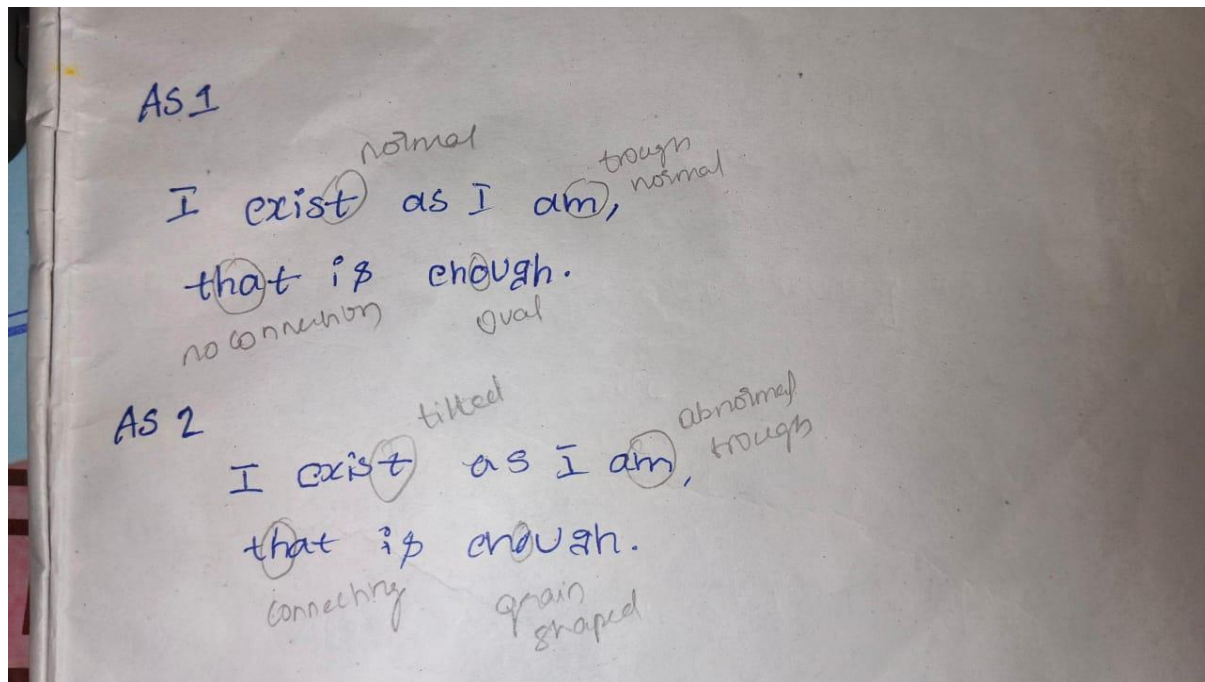 AS 1
normal
trough
normal
I exist as I am,
that is enough.
no connection
oval
AS 2
tilted
abnormal
trough
I exist as I am,
that is enough.
connecting
grain
shaped